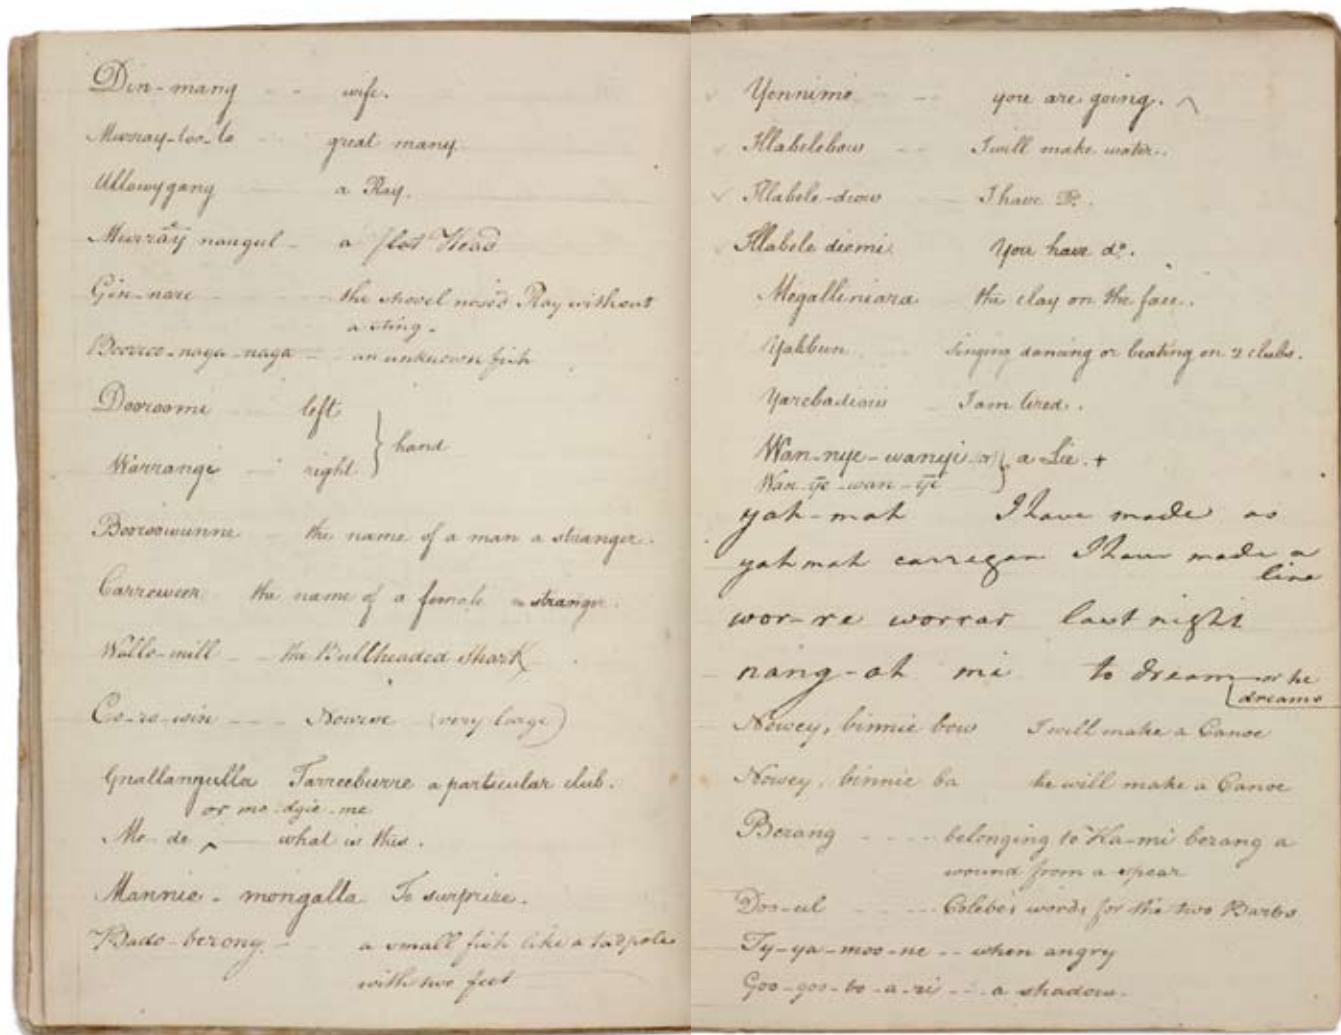 Din-mang - - wife.
Murray-too-lo - - great many
Ullowygang a Ray.
Murray naugul - a flat Head
Gin-nare the shovel nosed Ray without
a sting.
Boorroo-naga-naga - an unknown fish
Dooroomi left
hand
Warrangi - right
Booroowunne the name of a man a stranger.
Carreweer the name of a female a stranger.
Wallo-mill - - the Bullheaded Shark
Co-ro-win - - - Nowroe (very large)
Gnallangulla Tarreeburre a particular club.
or mo-dgie-me
Mo-de ^ what is this.
Mannie - mongalla To surprize.
Bado-berong - a small fish like a tadpole
with two feet
Yennimo - - you are going.
Illabelebow - - I will make water.
Illabele-diow I have Do.
Illabele diemi You have do.
Megalliniara the clay on the face.
Yabbun singing dancing or beating on 2 clubs.
Yarebadiow I am tired.
Wan-nye-wanyi or } a Lie. +
Wan-ye-wan-ye
yah-mah I have made as
yah mah carregan I have made a
line
wor-re worrar last night
nang-ah mi to dream or he
dreams
Nowey, binnie bow I will make a Canoe
Nowey, binnie ba he will make a Canoe
Berang - - - - belonging to Ka-mi berang a
wound from a spear
Doo-ul - - - Colebe's words for the two Barbs
Ty-ya-moo-ne - - when angry
Goo-goo-bo-a-ri - - - a shadow.